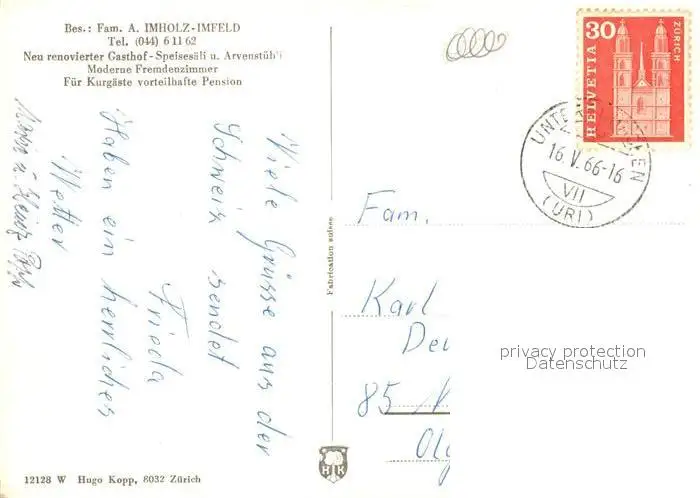 Bes.: Fam. A. IMHOLZ-IMFELD
Tel. (044) 6 11 62
Neu renovierter Gasthof - Speisesäli u. Arvenstübli
Moderne Fremdenzimmer
Für Kurgäste vorteilhafte Pension
Viele Grüsse aus der
Schweiz sendet
Frieda
Haben ein herrliches
Wetter
u.
12128 W Hugo Kopp, 8032 Zürich
Fabrication suisse
HK
30
HELVETIA
ZÜRICH
16.V.66-16
VII
(URI)
Fam.
Karl
85
privacy protection
Datenschutz